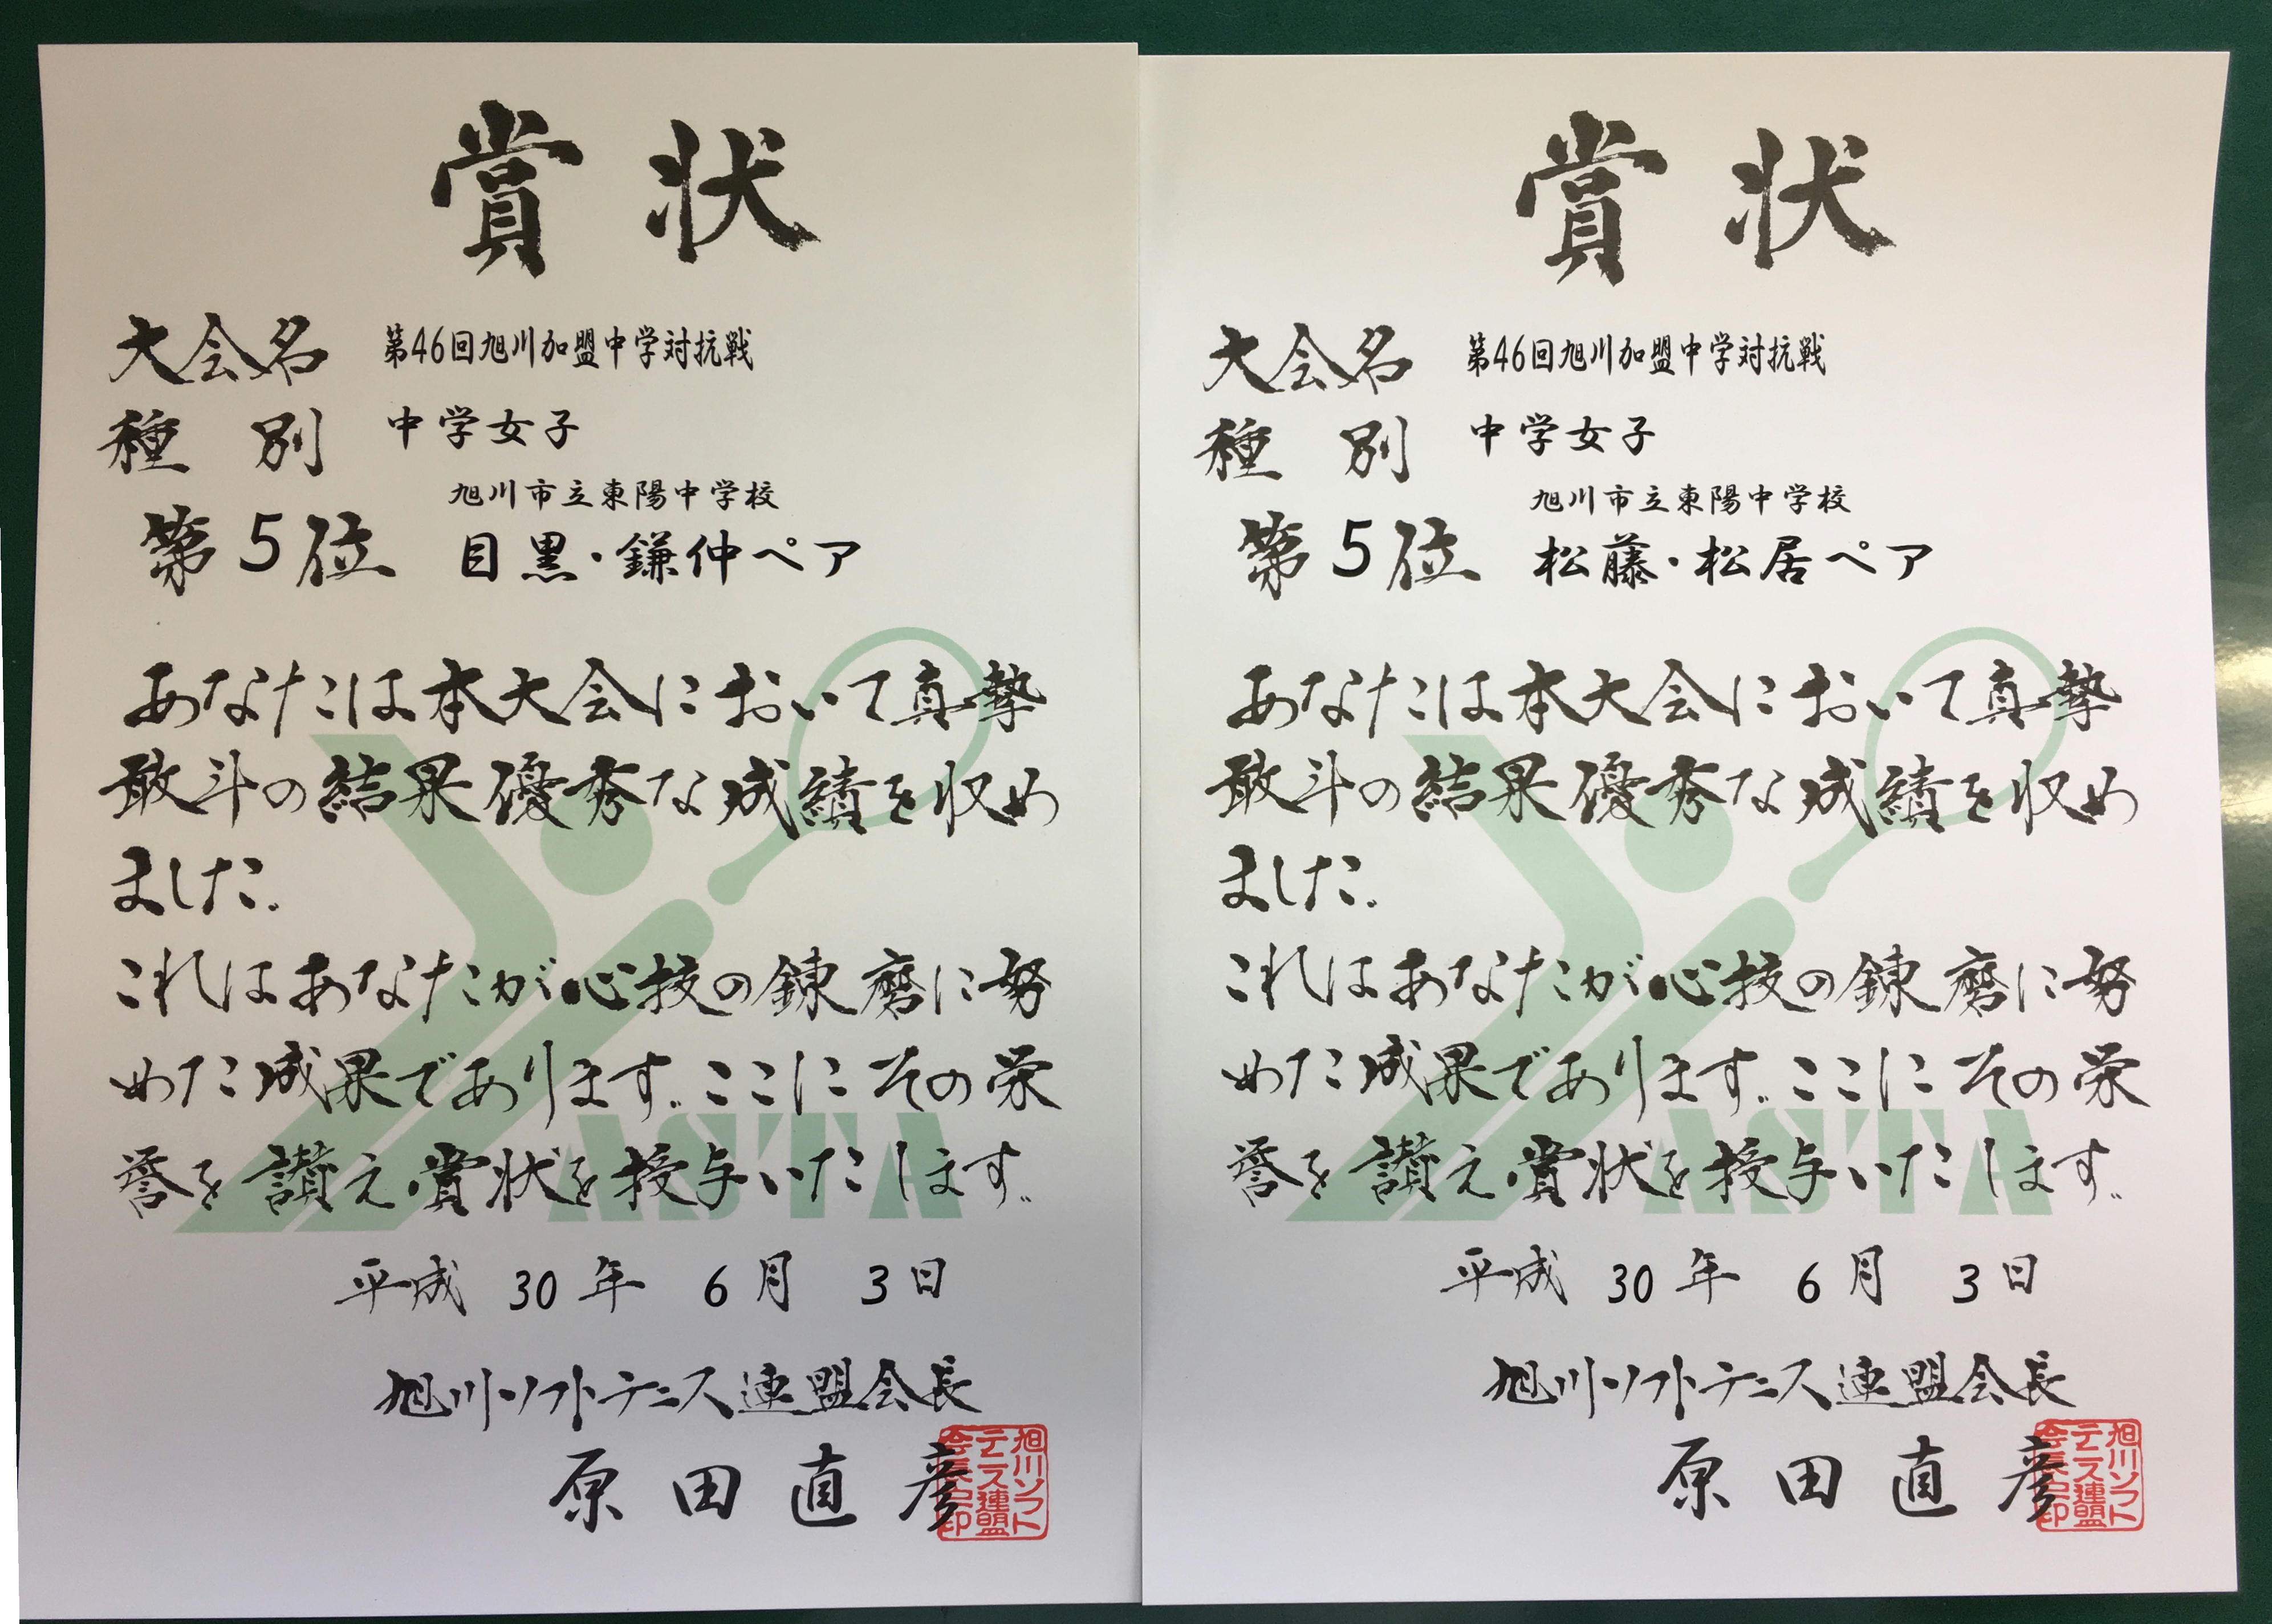 賞状
大会名 第46回旭川加盟中学対抗戦
種別 中学女子
旭川市立東陽中学校
第5位 目黒・鎌仲ペア
あなたは本大会において真摯
敢斗の結果優秀な成績を収め
ました。
これはあなたが心技の錬磨に努
めた成果であります。ここにその栄
誉を讃え賞状を授与いたします。
ASTA
平成 30 年 6 月 3 日
旭川ソフトテニス連盟会長
原田直彦
旭川ソフト
テニス連盟
会長之印
賞状
大会名 第46回旭川加盟中学対抗戦
種別 中学女子
旭川市立東陽中学校
第5位 松藤・松居ペア
あなたは本大会において真摯
敢斗の結果優秀な成績を収め
ました。
これはあなたが心技の錬磨に努
めた成果であります。ここにその栄
誉を讃え賞状を授与いたします。
ASTA
平成 30 年 6 月 3 日
旭川ソフトテニス連盟会長
原田直彦
旭川ソフト
テニス連盟
会長之印